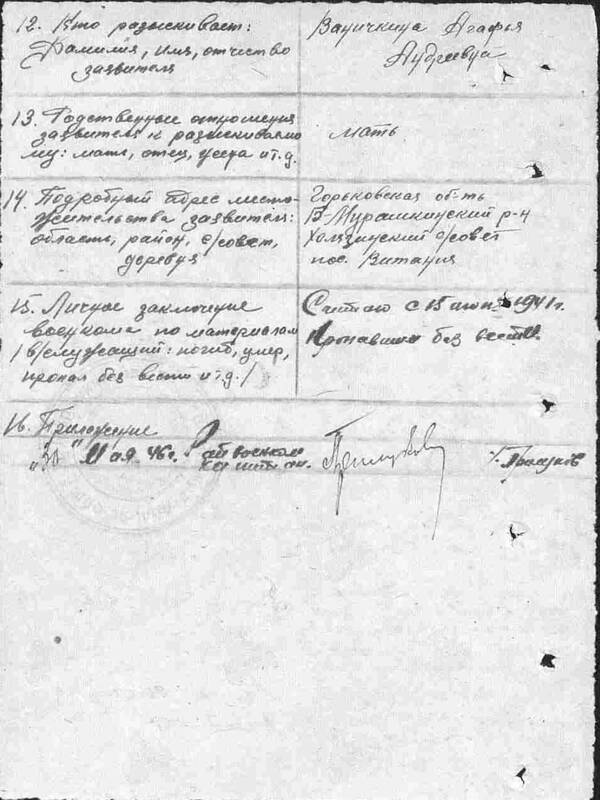 12. Кто разыскивает:
Фамилия, имя, отчество
заявителя
Ваничкина Агафья
Андреевна
13. Родственные отношения
заявителя к разыскиваемо
му: мать, отец, жена и т.д.
мать
14. Подробный адрес место-
жительства заявителя:
область, район, с/совет,
деревня
Горьковская об-ть
Б-Мурашкинский р-н
Холязинский с/совет
пос. Витания
15. Личное заключение
военкома по материалам
/в/служащий: погиб, умер,
пропал без вести и т.д./
Считаю с 15 1941 г.
Пропавшим без вести.
16. Приложение
"30" Мая 46 г. Райвоенком
капитан.